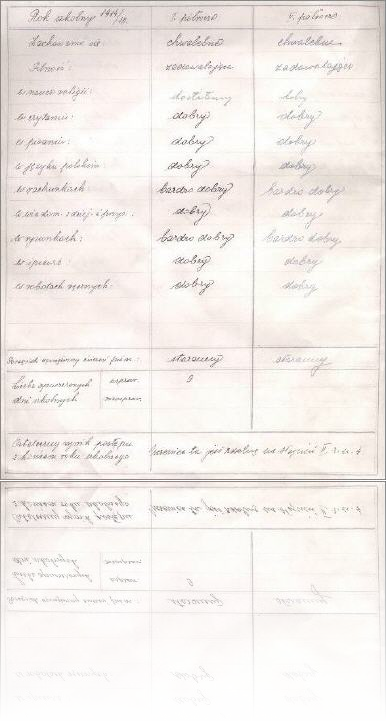 Rok szkolny 1917/18. I. półrocze II. półrocze
Zachowanie się: chwalebne chwalebne
Pilność: zadowalająca zadowalająca
w nauce religii: dostateczny dobry
w czytaniu: dobry dobry
w pisaniu: dobry dobry
w języku polskim: dobry dobry
w rachunkach: bardzo dobry bardzo dobry
w wiadom. z dziej. i przyr.: dobry dobry
w rysunkach: bardzo dobry bardzo dobry
w śpiewie: dobry dobry
w robotach ręcznych: dobry dobry
Porządek zewnętrzny ćwiczeń piśm.: staranny staranny
Liczba opuszczonych dni szkolnych
uspraw. 9
nieuspraw.
Ostateczny wynik postępu
z końcem roku szkolnego
Uczenica ta jest zdolną na stopień